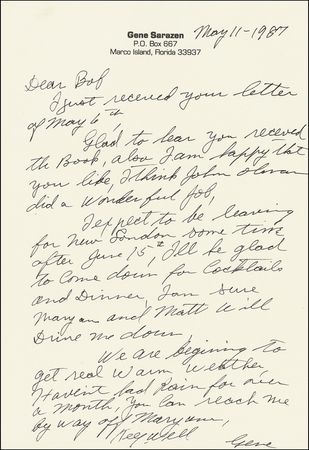 Gene Sarazen
P.O. Box 667
Marco Island, Florida 33937
May 11-1987
Dear Bob
I just received your letter
of May 6th
Glad to hear you received
the Book, also I am happy that
you like, I think John
did a Wonderful Job,
I expect to be leaving
for New London some time
after June 15th, I'll be glad
to come down for Cocktails
and Dinner, I am sure
Maryann and Matt Will
Drive me down
We are begining to
get real Warm Weather,
Havent had Rain for over
a month, You can reach me
by way of Maryann,
Gene